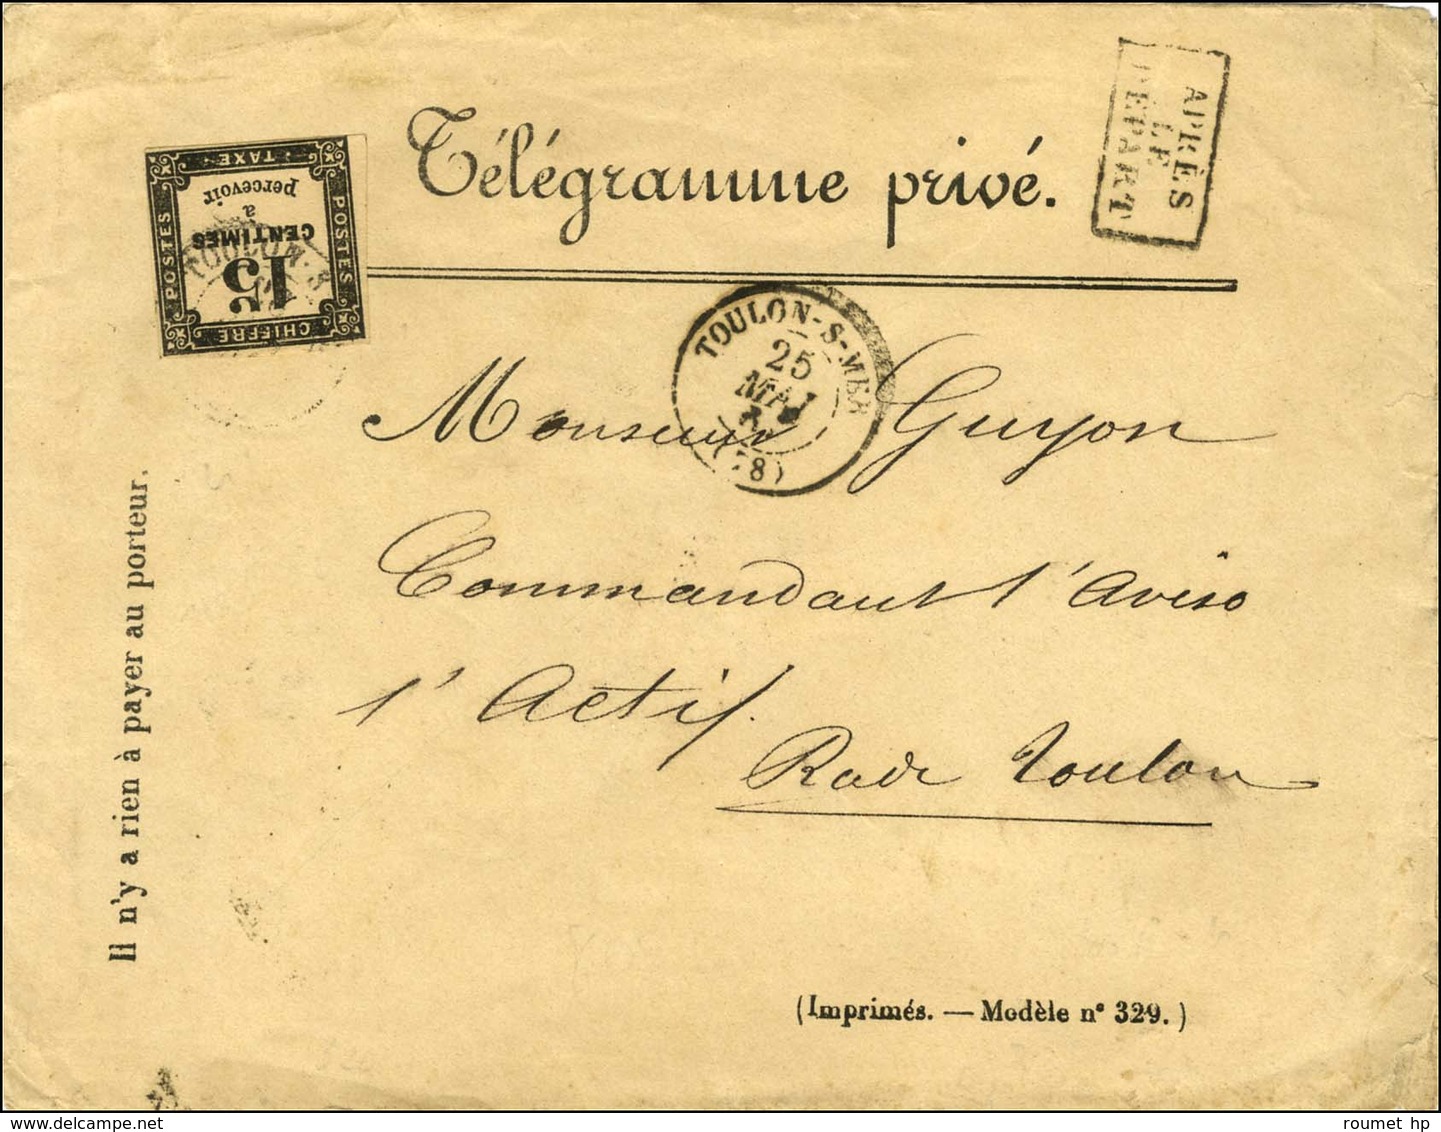 Télégramme privé.
APRÈS
LE
DÉPART
CHIFFRE
POSTES
15
CENTIMES
à
percevoir
POSTES
TAXE
TOULON-S
TOULON-S-MER
25
MAI
Monsieur Guyon
Commandant l'Aviso
l'Actif.
Rade Toulon
Il n'y a rien à payer au porteur.
(Imprimés. — Modèle n° 329.)
www.delcampe.net
roumet hp